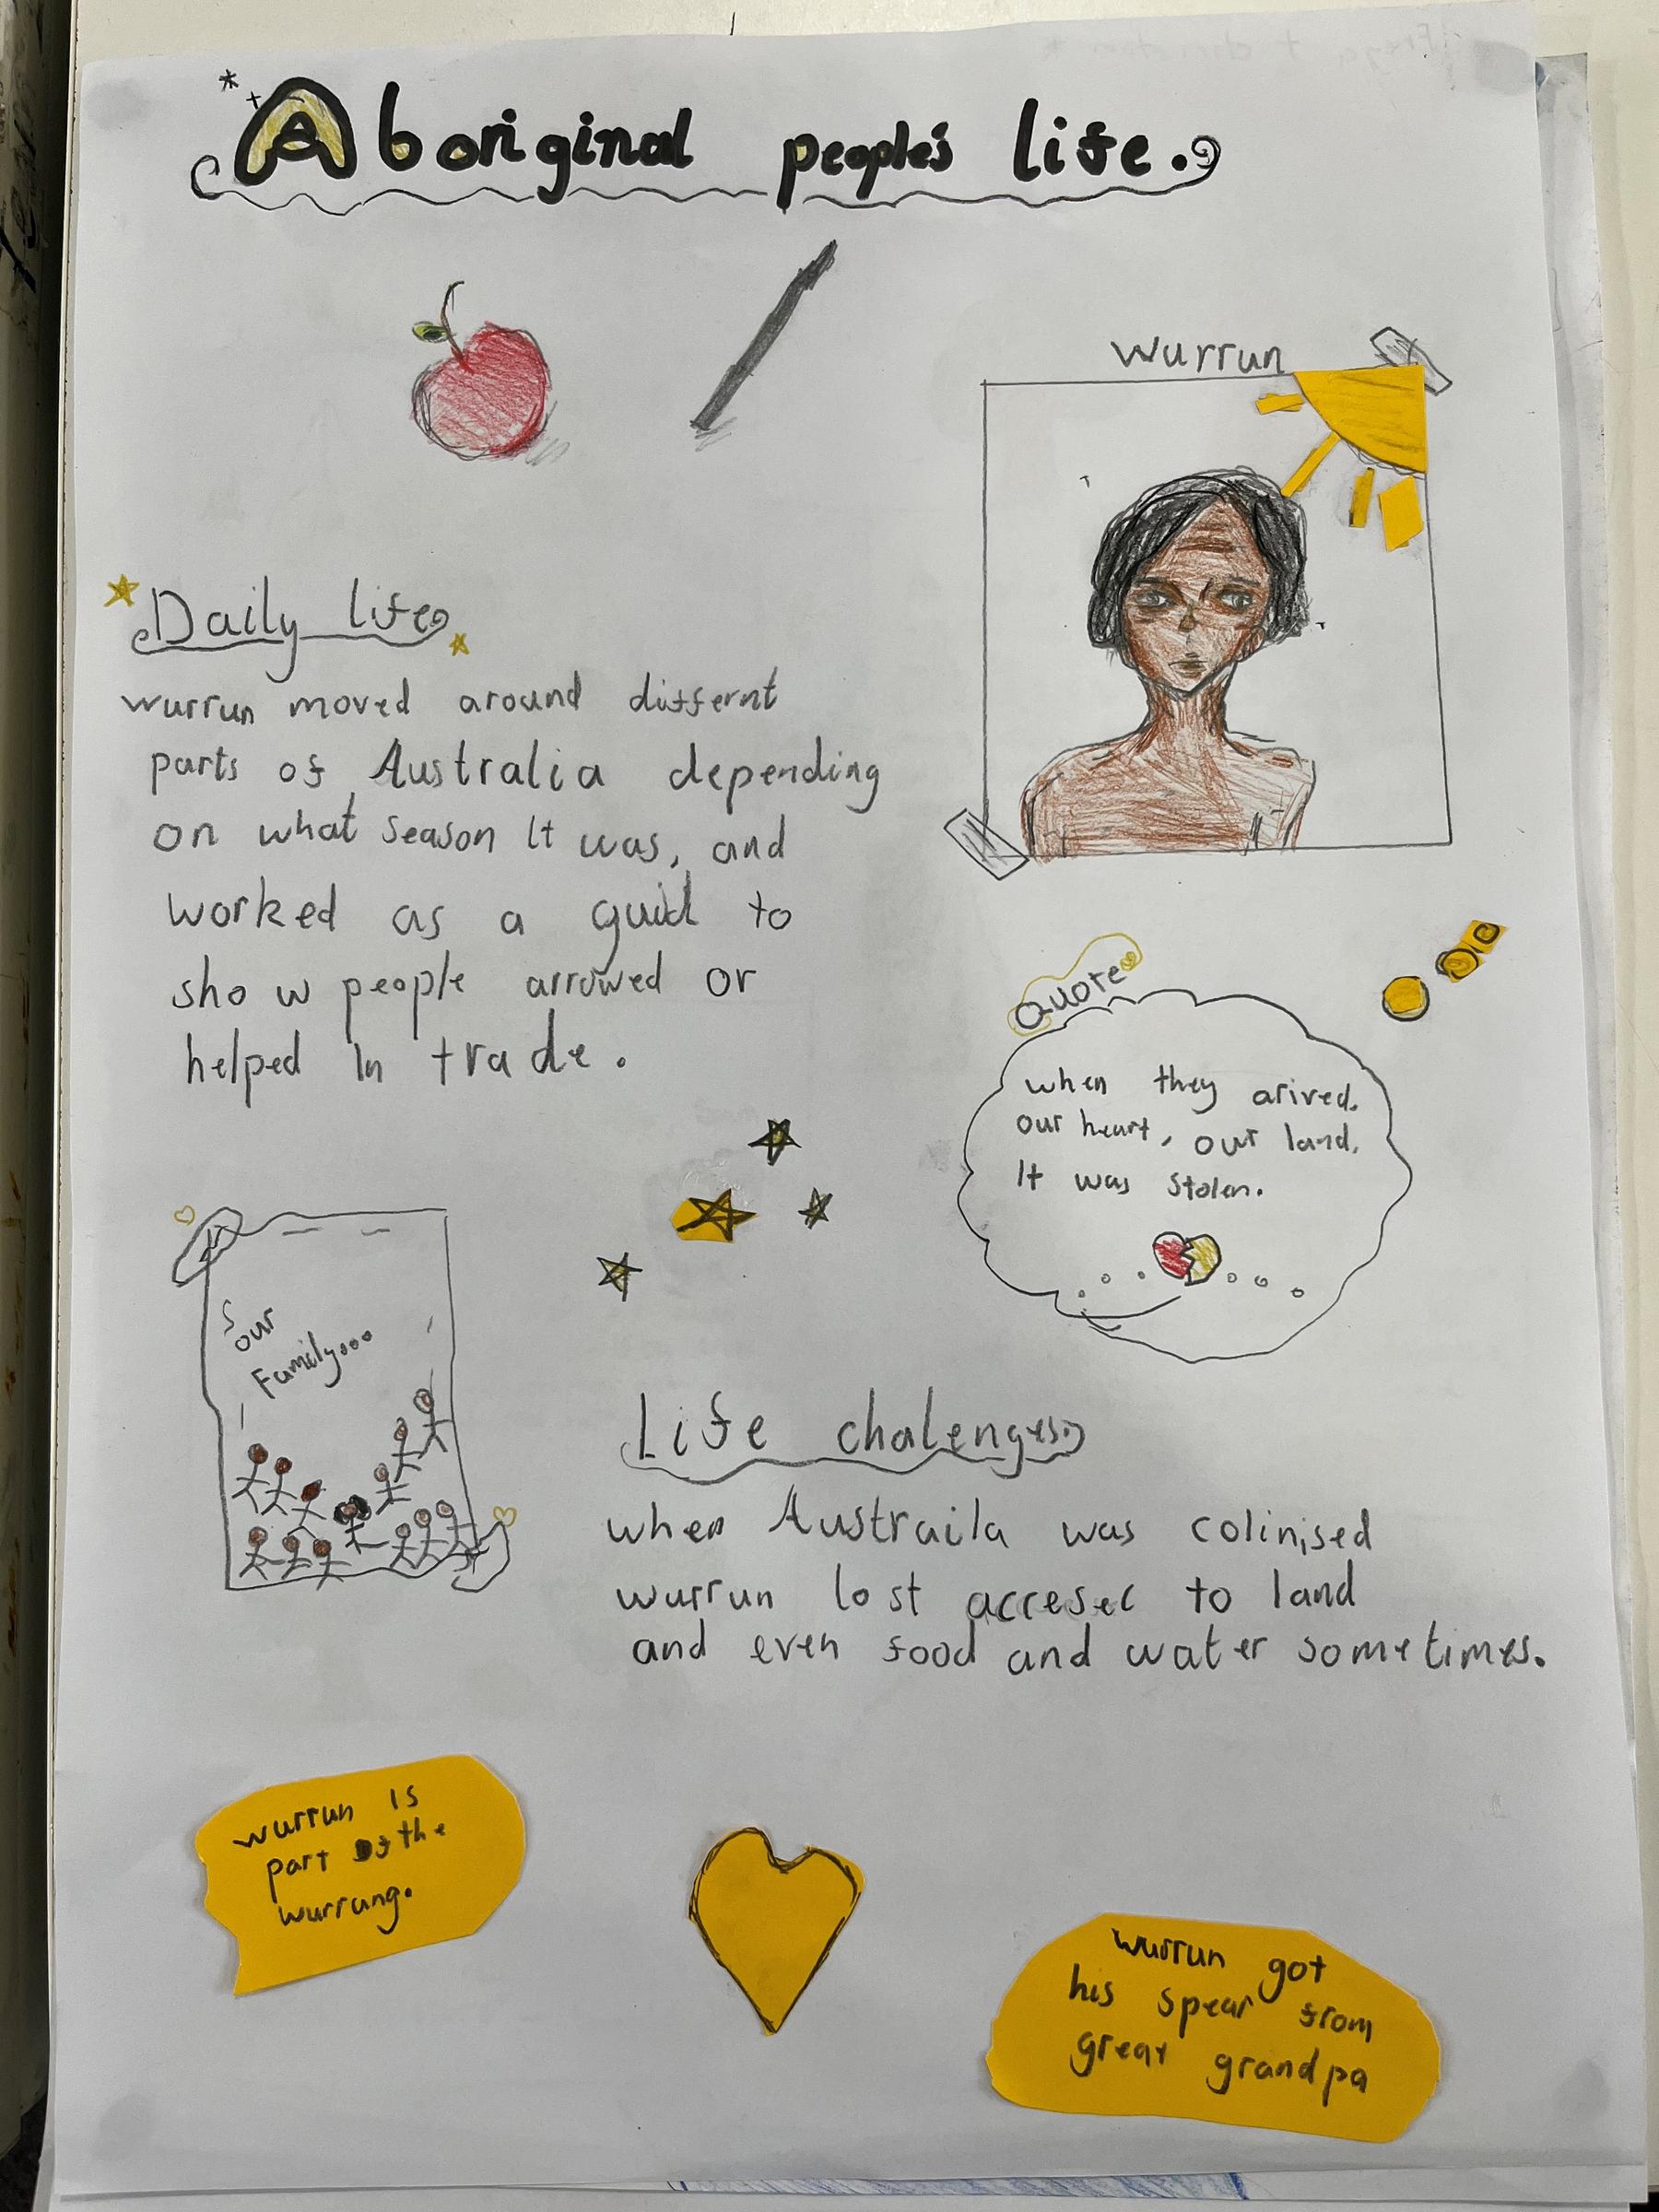 Aboriginal people's life.
wurrun
Daily life
wurrun moved around differnt
parts of Australia depending
on what season it was, and
worked as a guid to
show people arrowed or
helped in trade.
Quote
when they arived.
our heart, our land.
It was stolen.
our
Family...
Life chalenges.
when Austraila was colinised
wurrun lost accresec to land
and even food and water sometimes.
wurrun is
part of the
wurrung.
wurrun got
his spear from
great grandpa